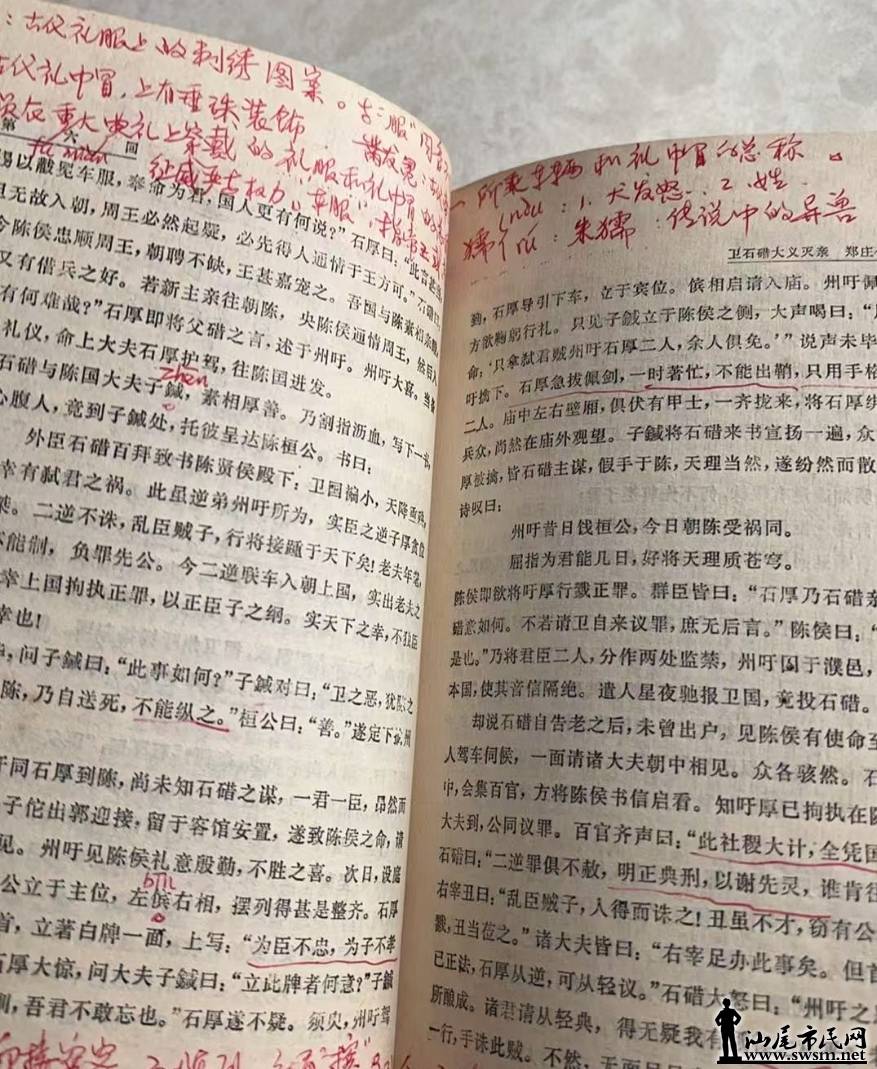 ：古代礼服上的刺绣图案。
古代礼巾冒，上有垂珠装饰
重大典礼上穿戴的礼服和礼巾冒
fú miǎn
第六回
锡以黻冕车服，奉命为君，国人更有何说？”石厚曰：“此言甚
且无故入朝，周王必然起疑，必先得人通情于王方可。”石碏曰
今陈侯忠顺周王，朝聘不缺，王甚嘉宠之。吾国与陈素相亲睦
又有借兵之好。若新主亲往朝陈，央陈侯通情周王，然后入
有何难哉？”石厚即将父碏之言，述于州吁。州吁大喜。当备
礼仪，命上大夫石厚护驾，往陈国进发。
zhēn
石碏与陈国大夫子鍼，素相厚善。乃割指沥血，写下一书
心腹人，竟到子鍼处，托彼呈达陈桓公。书曰：
外臣石碏百拜致书陈贤侯殿下：卫国褊小，天降重殃
幸有弑君之祸。此虽逆弟州吁所为，实臣之逆子厚贪位
桀。二逆不诛，乱臣贼子，行将接踵于天下矣！老夫年耄
不能制，负罪先公。今二逆联车入朝上国，实出老夫之
幸上国拘执正罪，以正臣子之纲。实天下之幸，不独臣
幸也！
，问子鍼曰：“此事如何？”子鍼对曰：“卫之恶，犹陈之
陈，乃自送死，不能纵之。”桓公曰：“善。”遂定下擒州
于同石厚到陈，尚未知石碏之谋，一君一臣，昂然而
子佗出郭迎接，留于客馆安置，遂致陈侯之命，请
见。州吁见陈侯礼意殷勤，不胜之喜。次日，设庭
bīn
公立于主位，左傧右相，摆列得甚是整齐。石厚
首，立著白牌一面，上写：“为臣不忠，为子不孝
石厚大惊，问大夫子鍼曰：“立此牌者何意？”子鍼
训，吾君不敢忘也。”石厚遂不疑。须臾，州吁驾
所乘车辆和礼巾冒的总称。
1. 犬发怒. 2. 姓.
朱獳：传说中的异兽
卫石碏大义灭亲 郑庄
勤，石厚导引下车，立于宾位。傧相启请入庙。州吁佩
方欲鞠躬行礼。只见子鍼立于陈侯之侧，大声喝曰：“
命：‘只拿弑君贼州吁石厚二人，余人俱免。’”说声未毕
吁擒下。石厚急拔佩剑，一时著忙，不能出鞘，只用手格
二人。庙中左右壁厢，俱伏有甲士，一齐拢来，将石厚绑
兵众，尚然在庙外观望。子鍼将石碏来书宣扬一遍，众
厚被擒，皆石碏主谋，假手于陈，天理当然，遂纷然而散
诗叹曰：
州吁昔日饯桓公，今日朝陈受祸同。
屈指为君能几日，好将天理质苍穹。
陈侯即欲将吁厚行戮正罪。群臣皆曰：“石厚乃石碏亲
碏意如何。不若请卫自来议罪，庶无后言。”陈侯曰：“
是也。”乃将君臣二人，分作两处监禁，州吁囚于濮邑，
本国，使其音信隔绝。遣人星夜驰报卫国，竟投石碏。
却说石碏自告老之后，未曾出户，见陈侯有使命至
人驾车伺侯，一面请诸大夫朝中相见。众各骇然。石
中，会集百官，方将陈侯书信启看。知吁厚已拘执在陈
大夫到，公同议罪。百官齐声曰：“此社稷大计，全凭国
石碏曰：“二逆罪俱不赦，明正典刑，以谢先灵，谁肯往
右宰丑曰：“乱臣贼子，人得而诛之！丑虽不才，窃有公
戮，丑当莅之。”诸大夫皆曰：“右宰足办此事矣。但首
已正法，石厚从逆，可从轻议。”石碏大怒曰：“州吁之
所酿成。诸君请从轻典，得无疑我有
一行，手诛此贼。不然，无面目
汕尾市民网
www.swsm.net